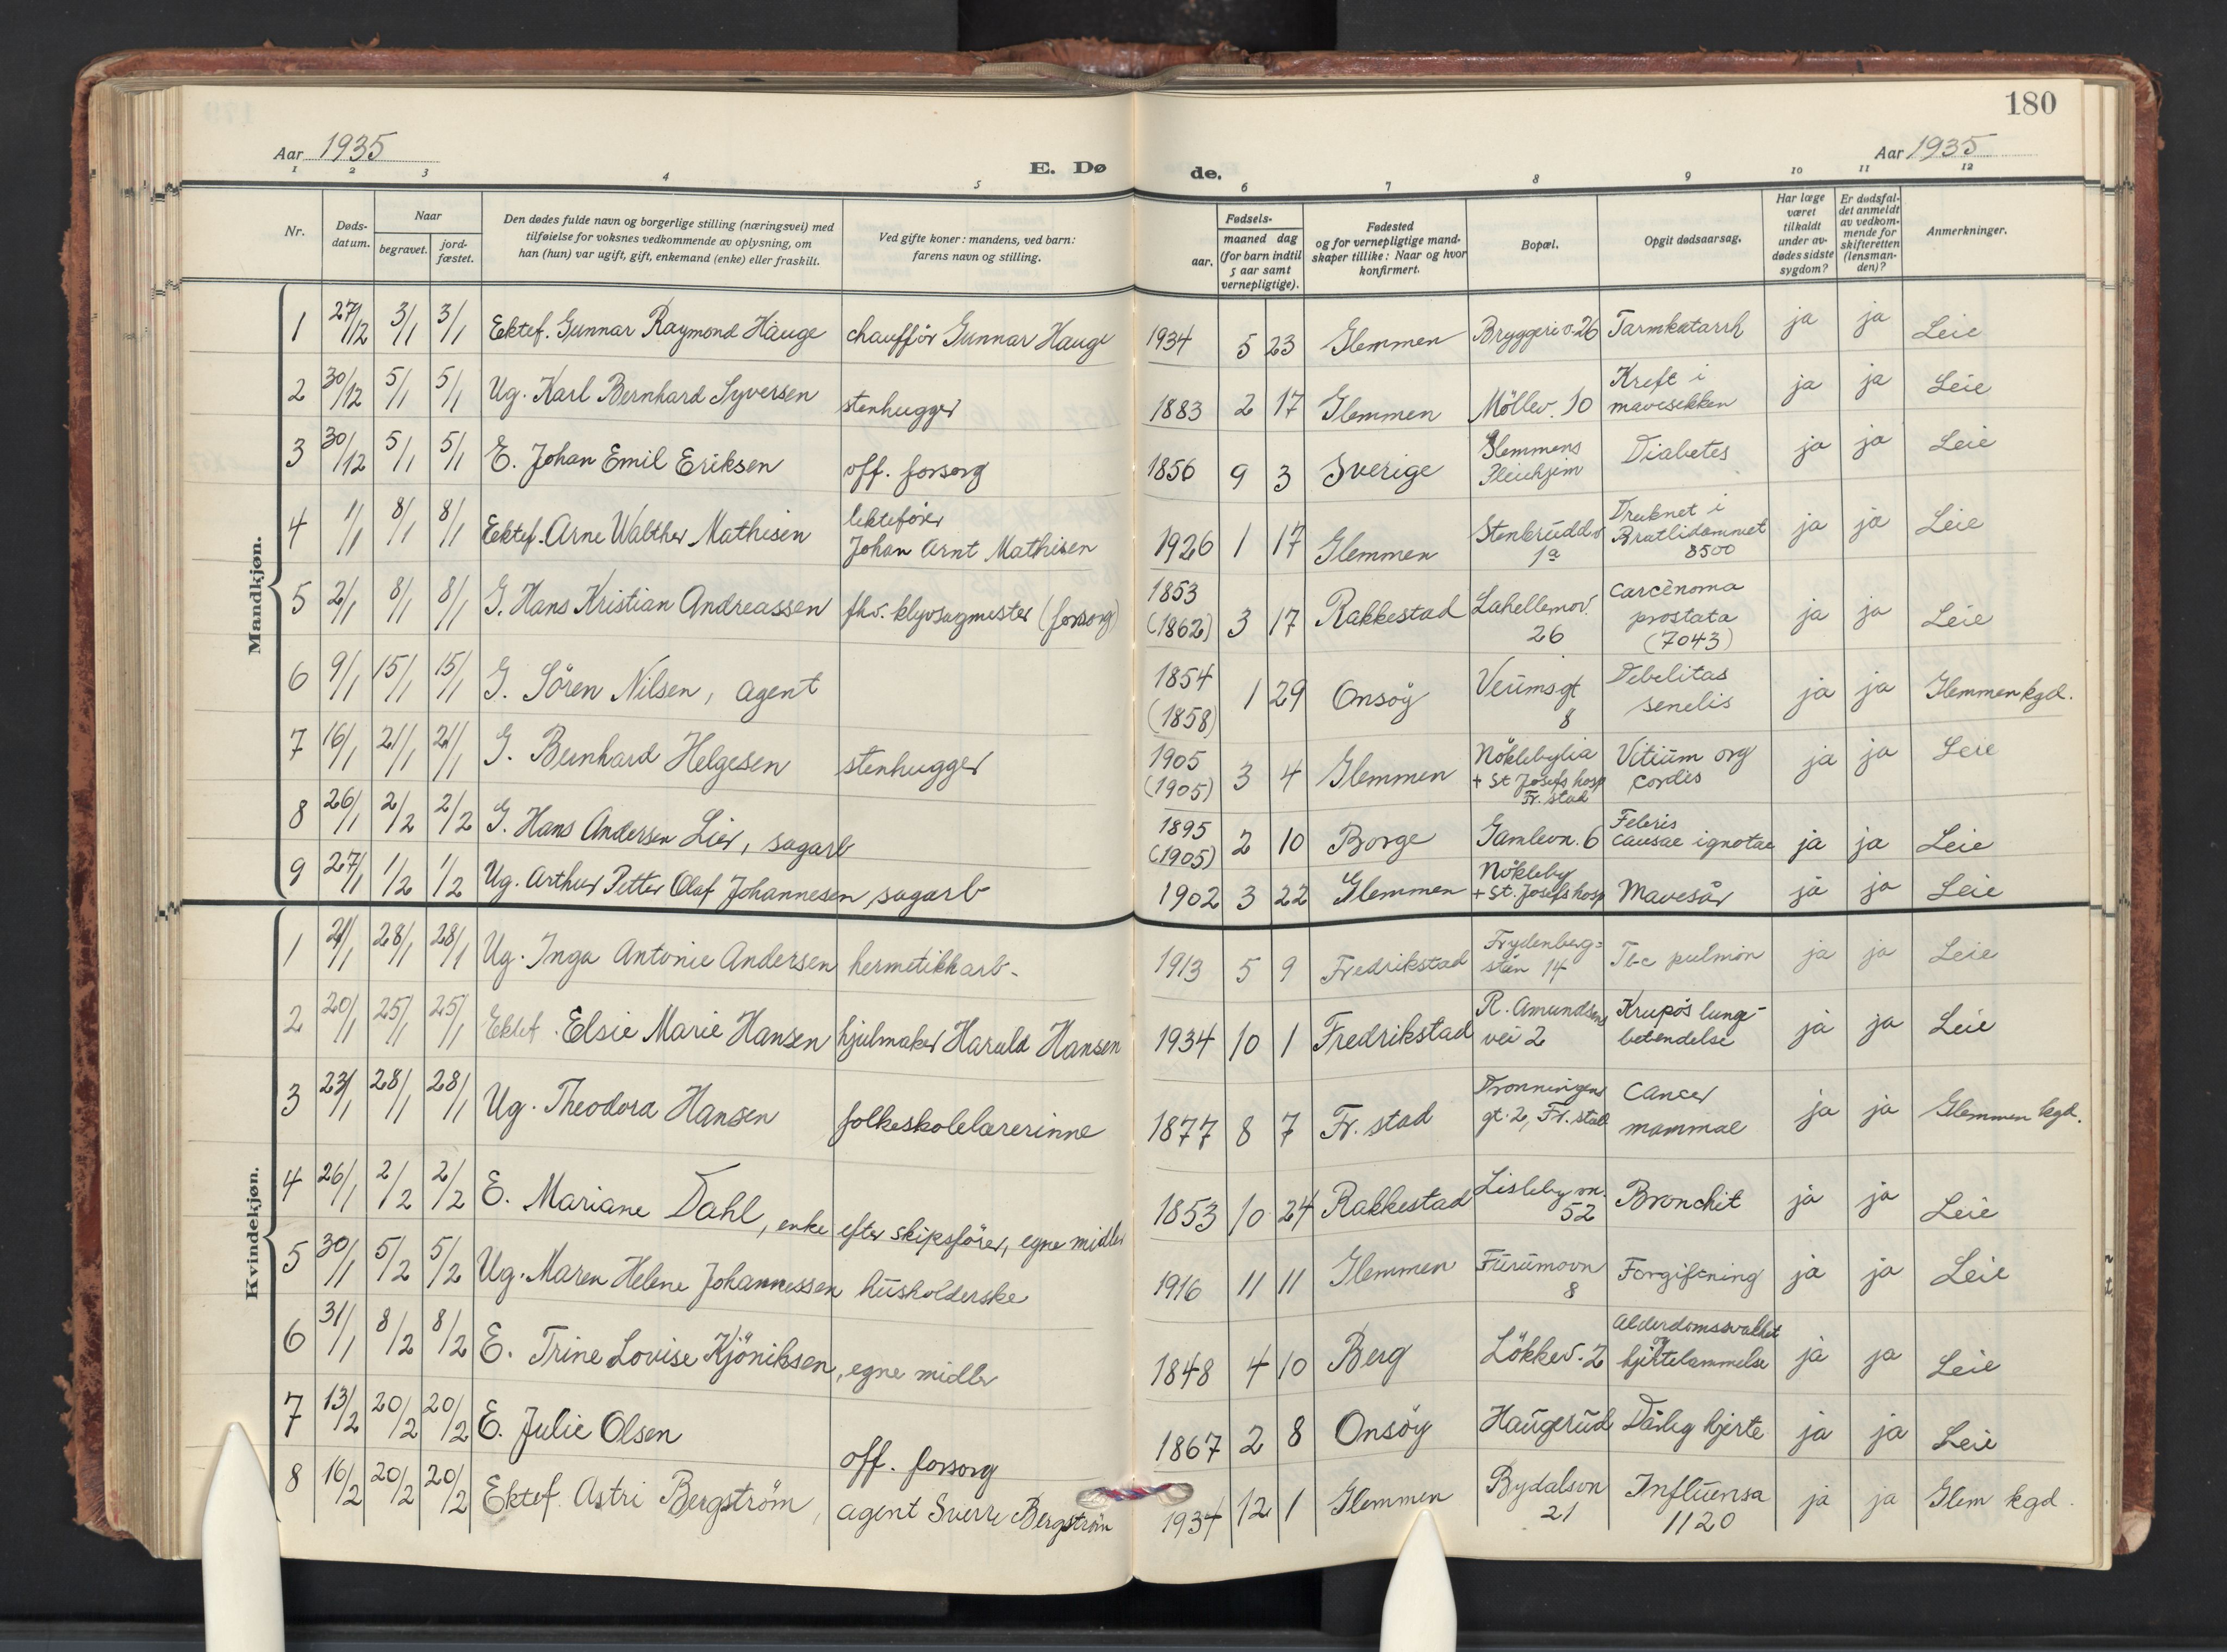 180
Aar 1935
E. Døde.
Aar 1935
1 2 3 4 5 6 7 8 9 10 11 12
Nr.
Døds-
datum.
Naar
begravet.
jord-
fæstet.
Den dødes fulde navn og borgerlige stilling (næringsvei) med
tilføielse for voksnes vedkommende av oplysning, om
han (hun) var ugift, gift, enkemand (enke) eller fraskilt.
Ved gifte koner: mandens, ved barn:
farens navn og stilling.
Fødsels-
aar.
maaned dag
(for barn indtil
5 aar samt
vernepligtige).
Fødested
og for vernepligtige mand-
skaper tillike: Naar og hvor
konfirmert.
Bopæl.
Opgit dødsaarsag.
Har læge
været
tilkaldt
under av-
dødes sidste
sygdom?
Er dødsfal-
det anmeldt
av vedkom-
mende for
skifteretten
(lensman-
den)?
Anmerkninger.
Mandkjøn.
1 27/12 3/1 3/1 Ektef. Gunnar Raymond Hauge chaufför Gunnar Hauge 1934 5 23 Glemmen Bryggeriv. 26 Tarmkatarrh ja ja Leie
2 30/12 5/1 5/1 Ug. Karl Bernhard Syversen stenhugger 1883 2 17 Glemmen Möllev. 10 Kreft i
mavesekken ja ja Leie
3 30/12 5/1 5/1 E. Johan Emil Eriksen off. forsorg 1856 9 3 Sverige Glemmens
Pleiehjem Diabetes ja ja Leie
4 1/1 8/1 8/1 Ektef. Arne Walther Mathisen lektefører
Johan Arnt Mathisen 1926 1 17 Glemmen Stenbruddv
1a Druknet i
Bratlidammet
8500 ja ja Leie
5 2/1 8/1 8/1 G. Hans Kristian Andreassen fhv. klyvsagmester (forsorg) 1853
(1862) 3 17 Rakkestad Lahellemov.
26 Carcenoma
prostata
(7043) ja ja Leie
6 9/1 15/1 15/1 G. Sören Nilsen, agent 1854
(1858) 1 29 Onsöy Veumsgt
8 Debelitas
senelis ja ja Glemmen kgd.
7 16/1 21/1 21/1 G. Bernhard Helgesen stenhugger 1905
(1905) 3 4 Glemmen Nöklebylia
+ St Josefs hosp
Fr. stad Vitium org
cordis ja ja Leie
8 26/1 2/2 2/2 G. Hans Andersen Lier, sagarb 1895
(1905) 2 10 Borge Gamlevn. 6 Febris
causae ignotae ja ja Leie
9 27/1 1/2 1/2 Ug. Arthur Petter Olaf Johannesen, sagarb 1902 3 22 Glemmen Nökleby
+ St. Josefs hosp Mavesår ja ja Leie
Kvindekjøn.
1 21/1 28/1 28/1 Ug. Inga Antonie Andersen hermetikkarb. 1913 5 9 Fredrikstad Frydenberg=
stien 14 Tbc pulmon ja ja Leie
2 20/1 25/1 25/1 Ektef. Elsie Marie Hansen hjulmaker Harald Hansen 1934 10 1 Fredrikstad R. Amundsens
vei 2 Krupös lunge-
betendelse ja ja Leie
3 23/1 28/1 28/1 Ug. Theodora Hansen folkeskolelærerinne 1877 8 7 Fr. stad Dronningens
gt. 2, Fr. stad Cancer
mammae ja ja Glemmen kgd.
4 26/1 2/2 2/2 E. Mariane Dahl, enke efter skipsförer, egne midler 1853 10 24 Rakkestad Lisleby vn.
52 Bronchit ja ja Leie
5 30/1 5/2 5/2 Ug. Maren Helene Johannessen husholderske 1916 11 11 Glemmen Furumovn
8 Forgiftning ja ja Leie
6 31/1 8/2 8/2 E. Trine Lovise Kjöniksen, egne midler 1848 4 10 Berg Lökkev. 2 Alderdomssvakhet
og
hjertelammelse ja ja Leie
7 13/2 20/2 20/2 E. Julie Olsen off. forsorg 1867 2 8 Onsöy Haugerud Dårlig hjerte ja ja Leie
8 16/2 20/2 20/2 Ektef. Astri Bergström, agent Sverre Bergström 1934 12 1 Glemmen Bydalsvn
21 Influensa
1120 ja ja Glem kgd.